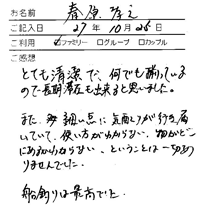 お名前 春原 孝之
ご記入日 27年10月26日
ご利用 ファミリー □グループ □カップル
ご感想
とても清潔で、何でも揃っている
ので長期滞在も出来ると思いました。
また、細い点に気配りが行き届
いていて、使い方がわからない、何がどこ
にあるかわからない、ということは一切あ
りませんでした。
船釣りは最高でした。